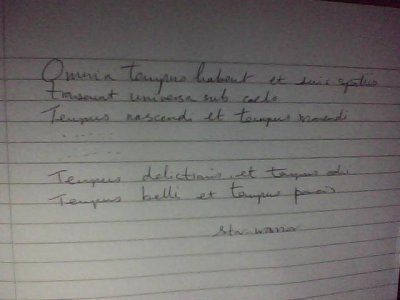 Omnia tempus habent et suis spatiis
transeunt universa sub caelo
Tempus nascendi et tempus moriendi
.......
.......
Tempus delictionis et tempus odii
Tempus belli et tempus pacis